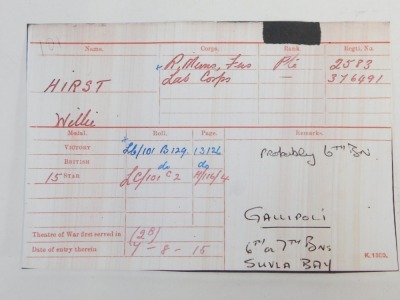 Name. Corps. Rank. Regtl. No.
HIRST R. Muns. Fus Pte 2583
Willie Lab Corps — 376491
Medal. Roll. Page. Remarks.
VICTORY L6/101 B129. 1312L Probably 6TH BN.
BRITISH do do
15 STAR LC/101 C2
GALLIPOLI
Theatre of War first served in (2B) 6TH or 7TH BNS
Date of entry therein 7-8-15 SUVLA BAY
K. 1380.